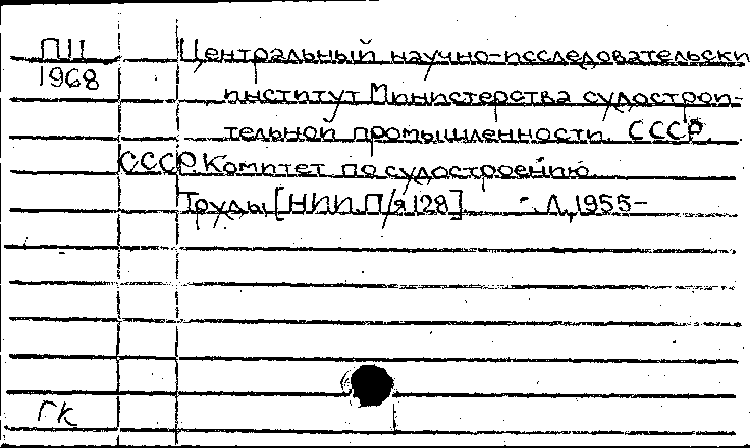 ПЦ Центральный научно-исследовательски
1968
институт Министерства судострои-
тельной промышленности СССР.
СССР. Комитет по судостроению.
Труды [НИИ. П/я 128] - Л., 1955-
ГК